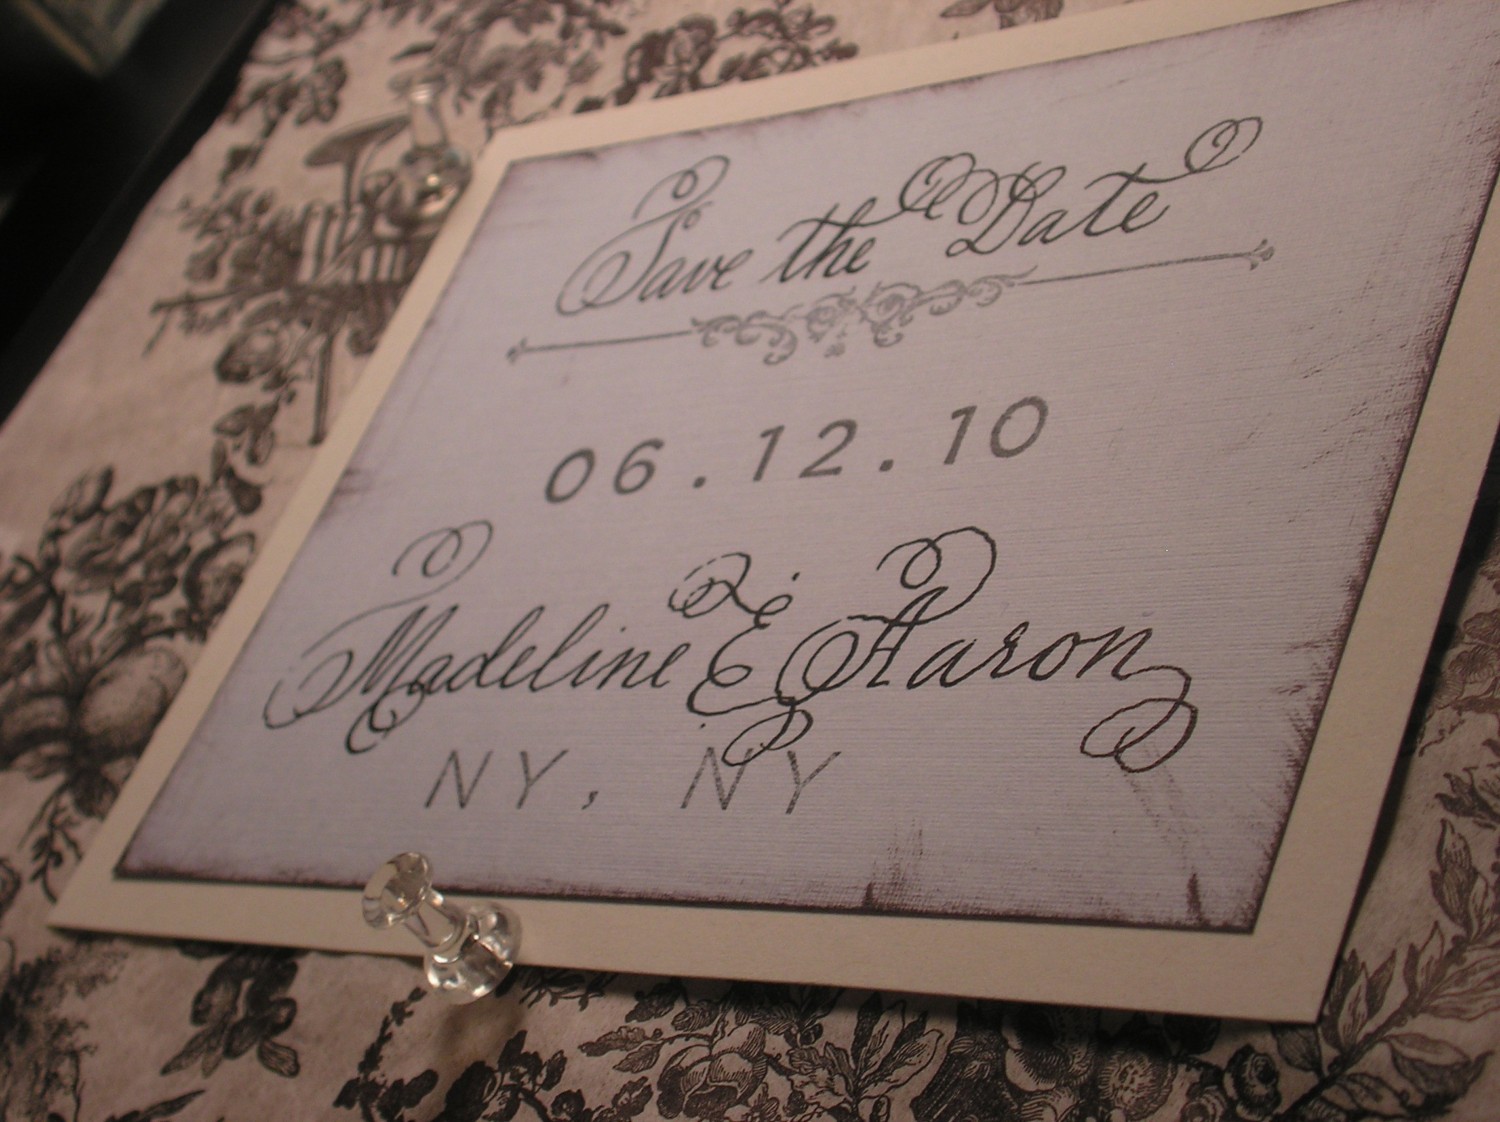 Save the Date
06.12.10
Madeline & Aaron
NY, NY